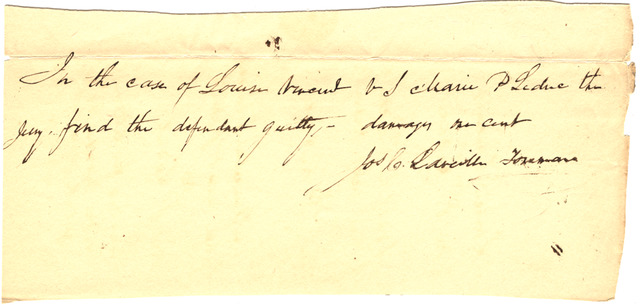 In the case of Louise Vincent v S Marie P Leduc the
jury find the defendant guilty, - damages one cent
Jos C. Laveille Foreman